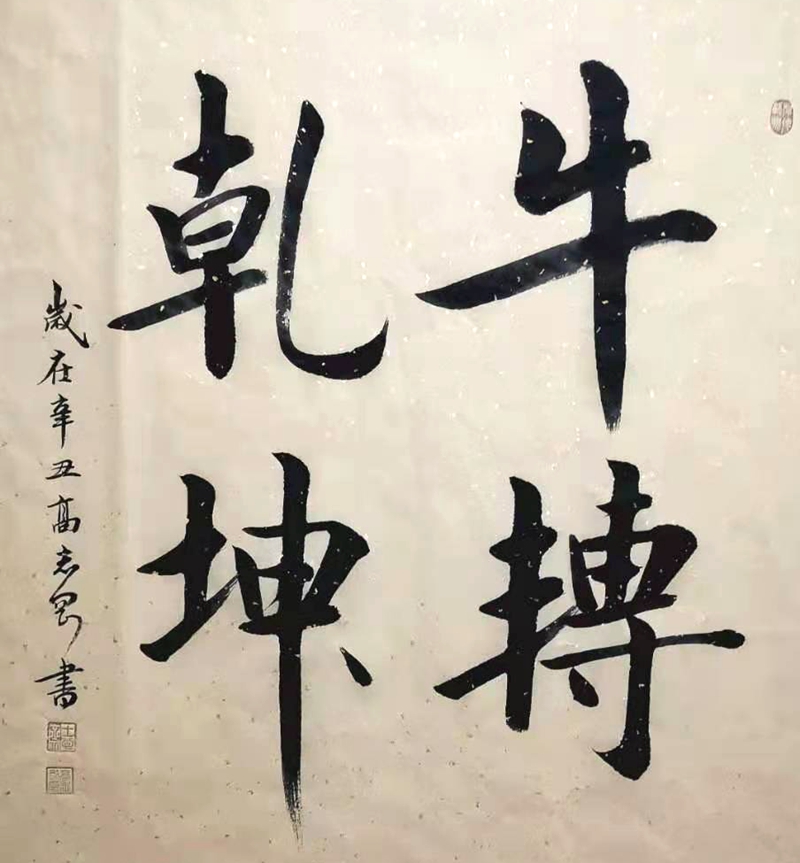 牛轉
乾坤
歲在辛丑高志剛書